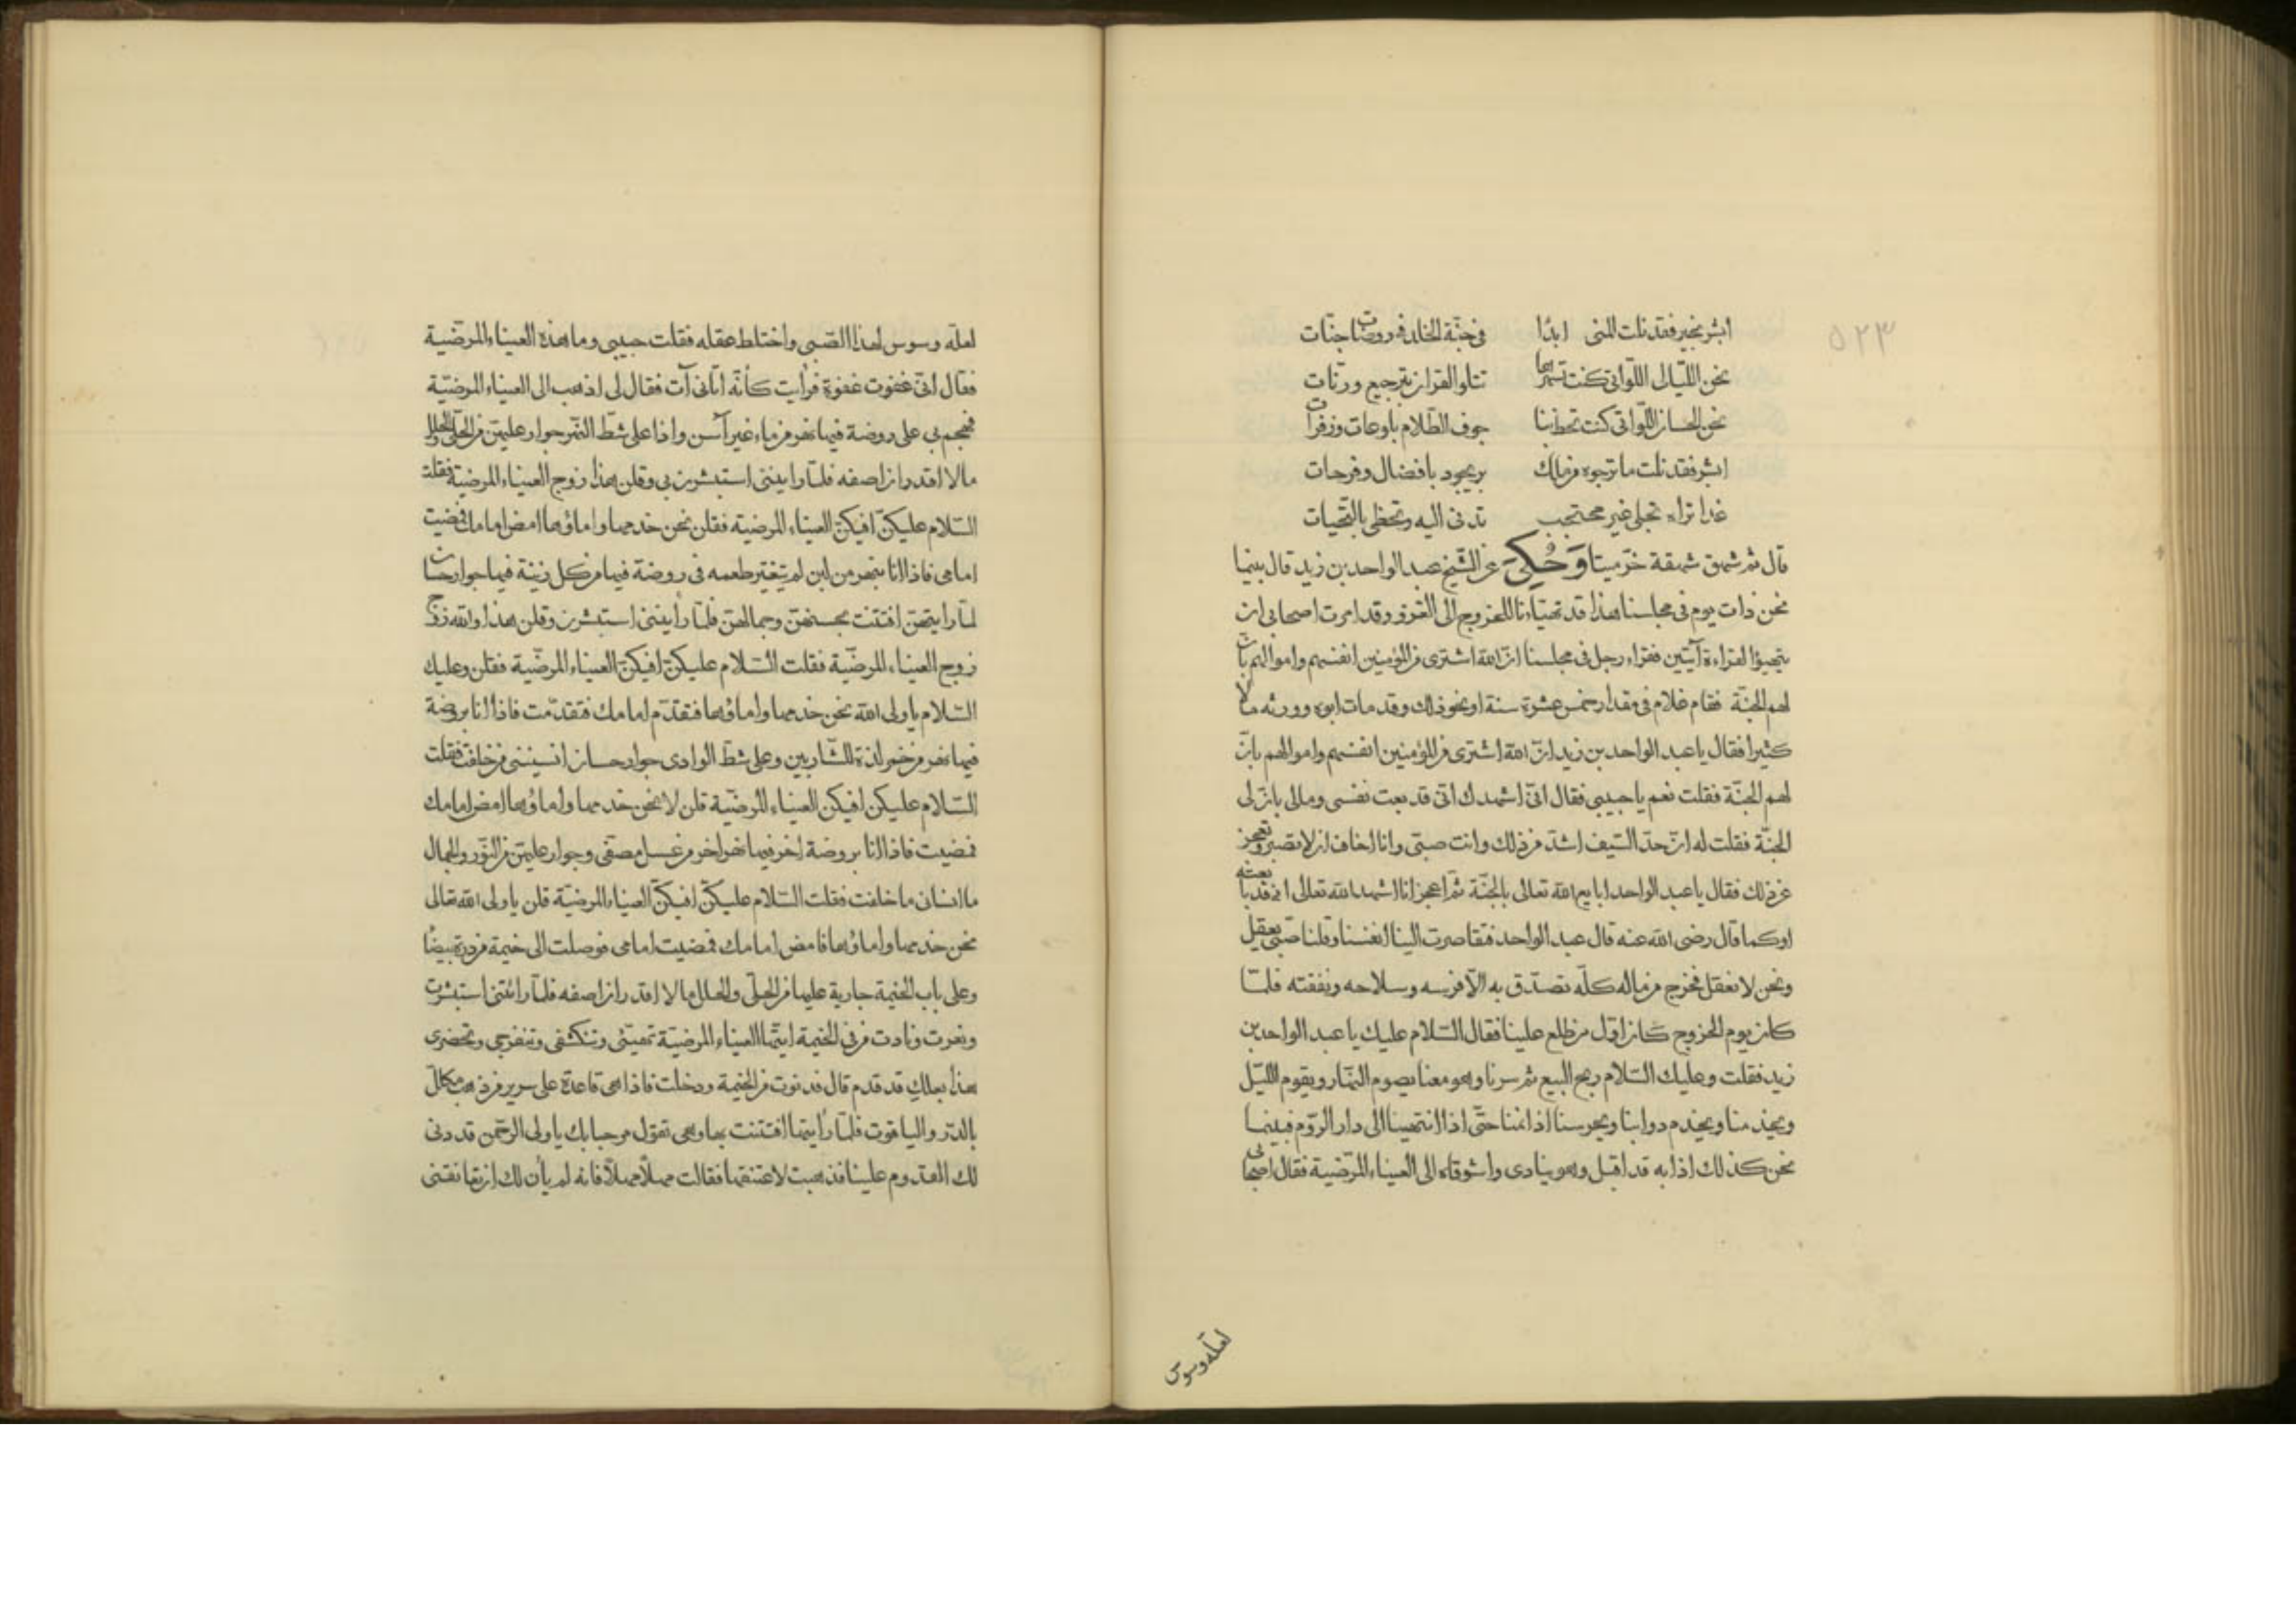 ٥٢٣
ابشر بخير فقد نلت المنى ابدًا في جنّة الخلد في روضات جنّات
نحن الليّالى اللّواتى كنت تسهرها تتلو القران بترجيع ورنّات
نحن الحسان اللّواتى كنت تخطبنا جوف الظّلام بلوعات وزفرات
ابشر فقد نلت ما ترجوه من ملك برّ يجود بافضال وفرحات
غدا تراه تجلى غير محتجب تدنى اليه وتحظى بالتّحيات
قال ثم شهق شهقة خرّ ميتا وَحُكِىَ عن الشّيخ عبد الواحد بن زيد قال بينما
نحن ذات يوم فى مجلسنا هذا قد تهيّاءنا للخروج الى الغزو وقد امرت اصحابى ان
يتهيؤا لقراءة آيتين فقراء رجل فى مجلسنا انّ الله اشترى من المؤمنين انفسهم واموالهم بانّ
لهم الجنّة فقام غلام فى مقدار خمس عشرة سنة او نحو ذلك وقد مات ابوه وورثه مالا
كثيرا فقال يا عبد الواحد بن زيد انّ الله اشترى من المؤمنين انفسهم واموالهم بانّ
لهم الجنّة فقلت نعم يا حبيبى فقال انّى اشهدك انّى قد بعت نفسى ومالى بان لى
الجنّة فقلت له انّ حدّ السّيف اشدّ من ذلك وانت صبّى وانا اخاف ان لا تصبر وتعجز
عن ذلك فقال يا عبد الواحد ابايع الله تعالى بالجنّة ثمّ اعجز انا اشهد الله تعالى انى قد بايعته
او كما قال رضى الله عنه قال عبد الواحد فتقاصرت الينا انفسنا وقلنا صبّى يعقل
ونحن لا نعقل فخرج من ماله كلّه تصدّق به الّا فرسه وسلاحه ونفقته فلمّا
كان يوم الخروج كان اوّل من طلع علينا فقال السّلام عليك يا عبد الواحد بن
زيد فقلت وعليك السّلام ربح البيع ثم سرنا وهو معنا يصوم النّهار ويقوم اللّيل
ويخدمنا ويخدم دوابنا ويحرسنا اذا نمنا حتّى اذا انتهينا الى دار الروّم فبينما
نحن كذلك اذا به قد اقبل وهو ينادى واشوقاه الى العيناء المرّضية فقال اصحابى
لعلّه وسوس
لعلّه وسوس لهذا الصّبى واختلط عقله فقلت حبيبى وما هذه العيناء المرضّية
فقال انّى غفوت غفوة فرأيت كأنّه اتانى آت فقال لى اذهب الى العيناء المرضيّة
فهجم بى على روضة فيها نهر من ماء غير آسن واذا على شطّ النّهر جوار عليهنّ من الحلى والحلل
ما لا اقدر ان اصفه فلمّا راينى استبشرن بى وقلن هذا زوج العيناء المرضية فقلت
السّلام عليكنّ افيكنّ العيناء المرضية فقلن نحن خدمها واماؤها امض امامك فمضيت
امامى فاذا انا بنهر من لبن لم يتغيّر طعمه فى روضة فيها من كل زينة فيها جوار حسان
لمّا رايتهنّ افتتنت بحسنهنّ وجمالهنّ فلمّا رأينى استبشرن وقلن هذا والله زوج
زوج العيناء المرضّية فقلت السّلام عليكنّ افيكنّ العيناء المرضّية فقلن وعليك
السّلام يا ولى الله نحن خدمها واماؤها فتقدّم امامك فتقدّمت فاذا انا بروضة
فيها نهر من خمر لذة للشّاربين وعلى شطّ الوادى جوار حسان انسينى من خلفت فقلت
السّلام عليكن افيكن العيناء المرضيّة قلن لا نحن خدمها واماؤها امض امامك
فمضيت فاذا انا بروضة اخر فيها نهر اخر من عسل مصفّى وجوار عليهن من النّور والجمال
ما انسانى ما خلفت فقلت السّلام عليكنّ افيكنّ العيناء المرضيّة قلن يا ولى الله تعالى
نحن خدمها واماؤها فامض امامك فمضيت امامى فوصلت الى خيمة من درة بيضا
وعلى باب الخيمة جارية عليها من الحلى والحلل ما لا اقدر ان اصفه فلمّا رائتنى استبشرت
ونعرت ونادت من فى الخيمة ايتّها العيناء المرضيّة تهيّئى وتنكشفى وتنفرجى وتحضرى
هذا بعلك قد قدم قال فدنوت من الخيمة ودخلت فاذا هى قاعدة على سرير من ذهب مكلّل
بالدّر والياقوت فلمّا رأيتها افتتنت بها وهى تقول مرحبا بك يا ولى الرحّمن قد دنى
لك القدوم علينا فذهبت لاعتنقها فقالت مهلًا مهلًا فانه لم يأن لك ان تعانقنى